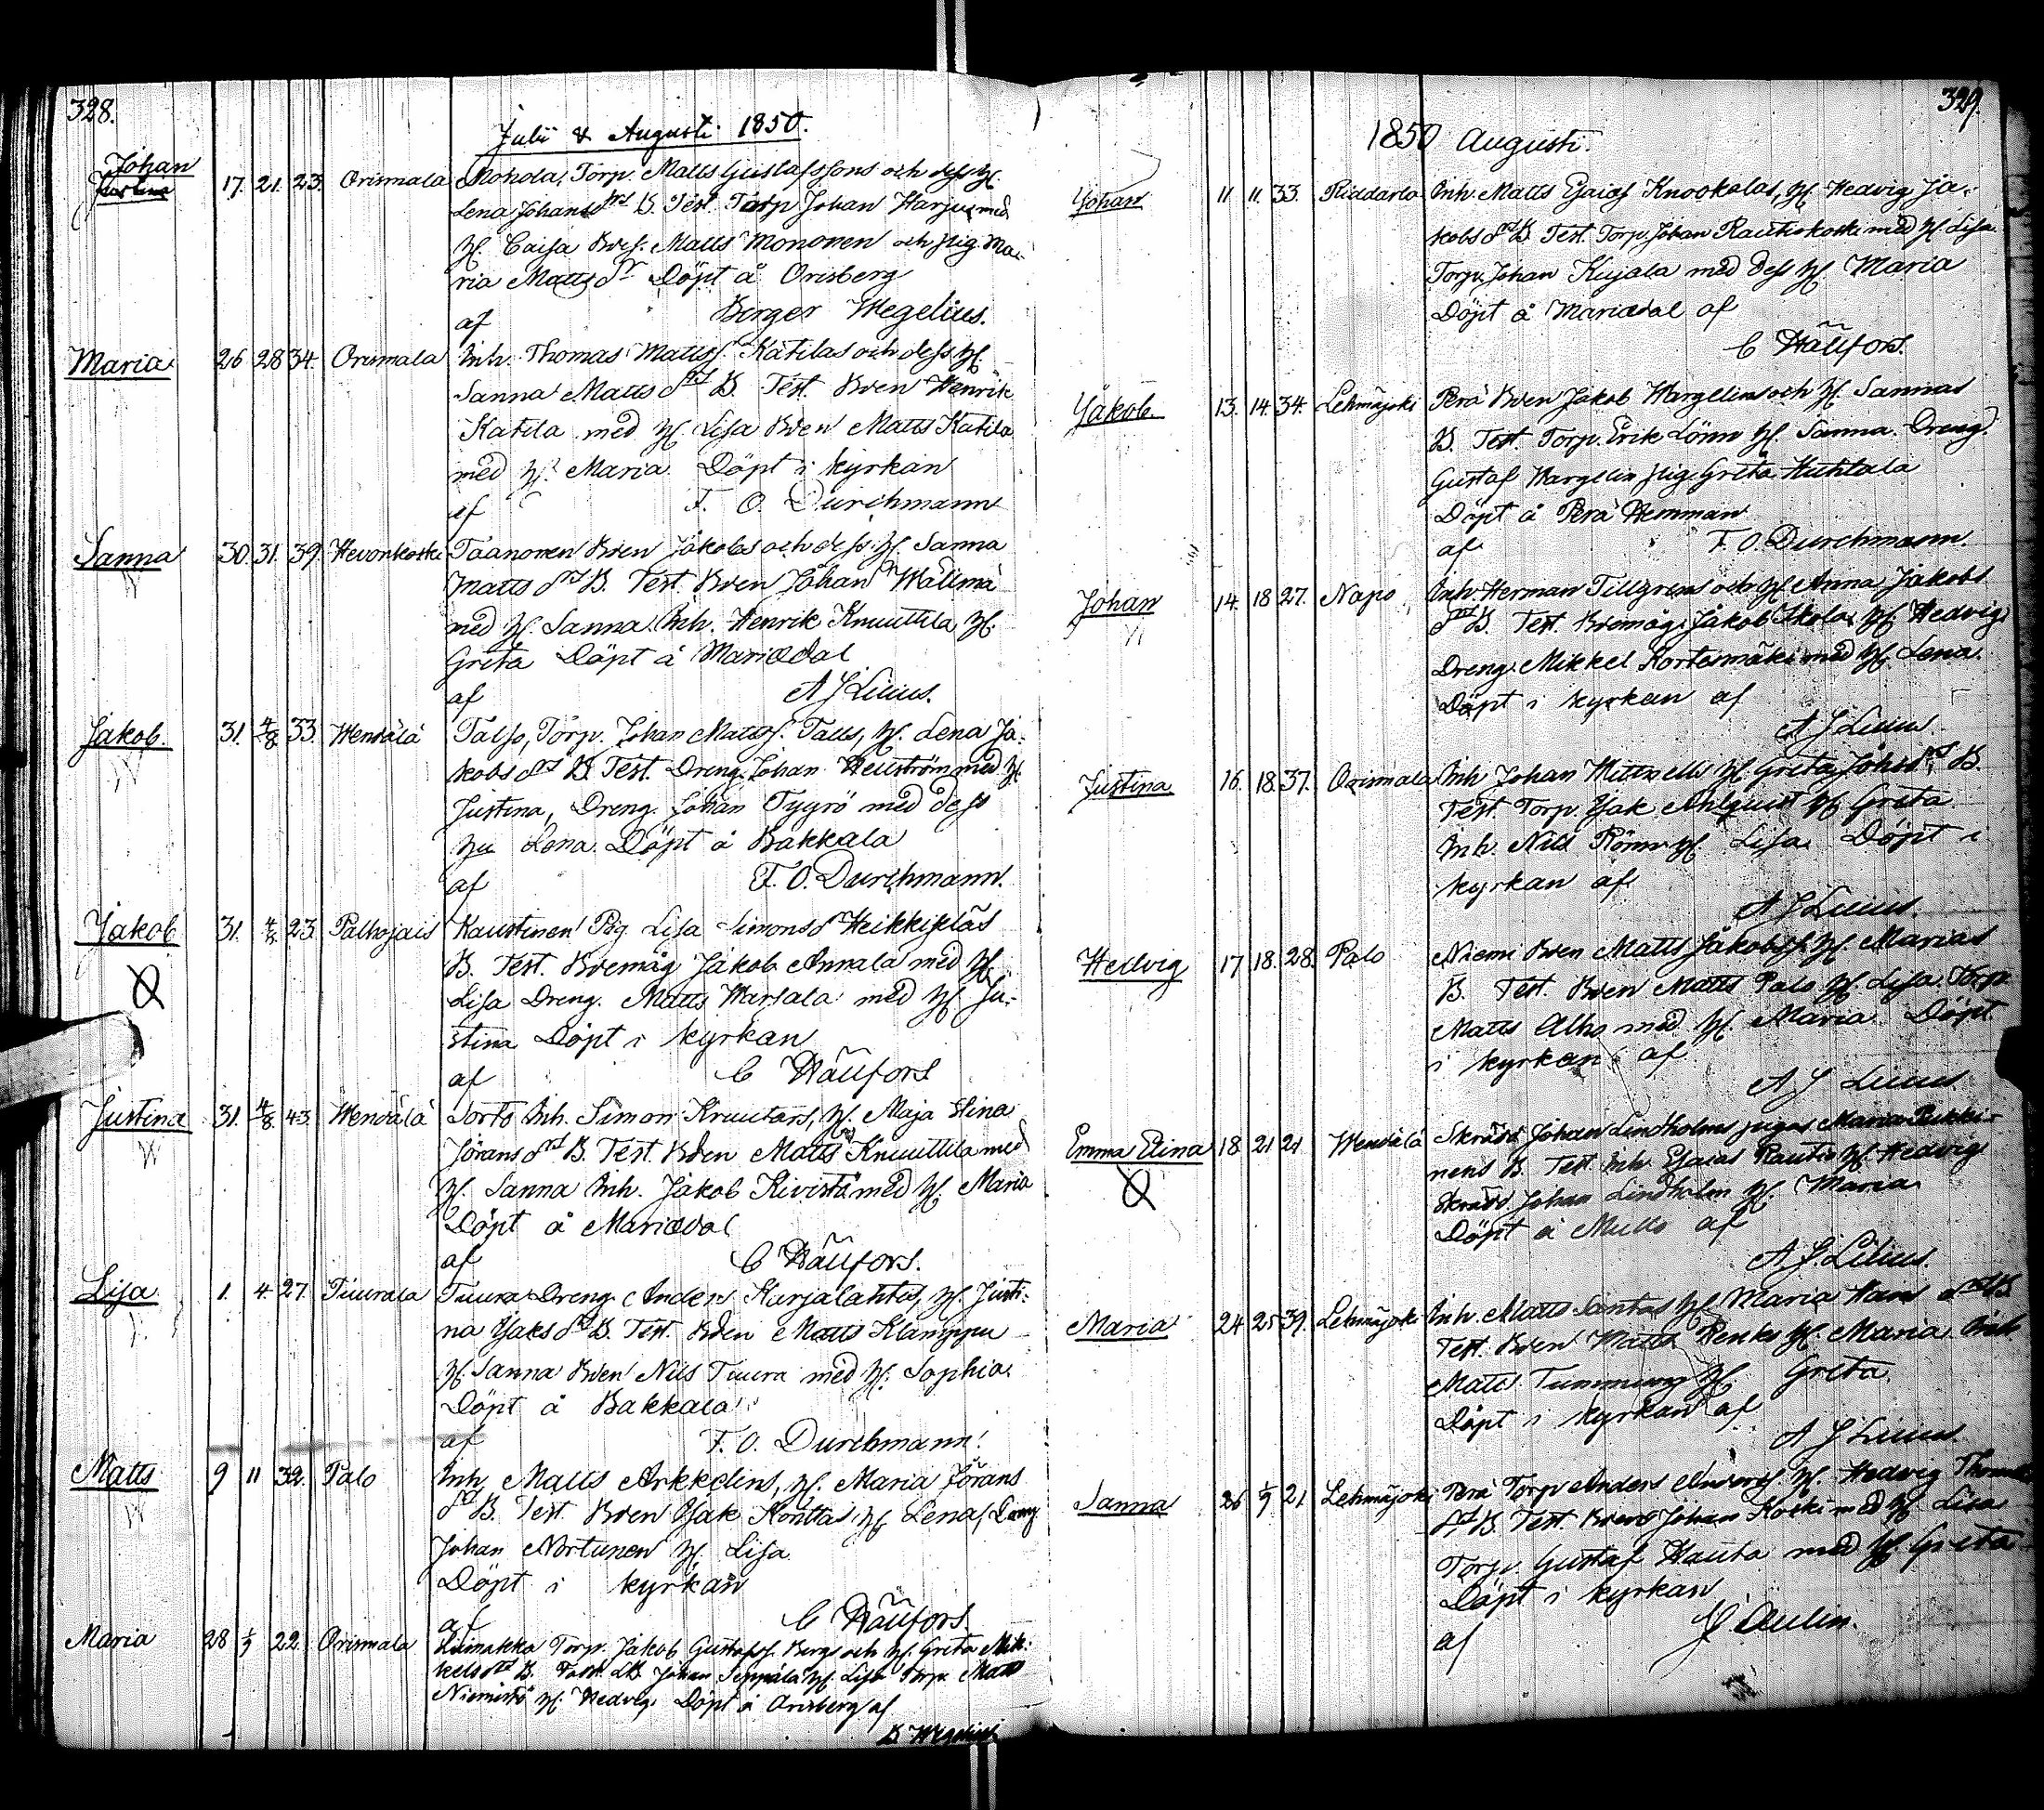 328.
Julii & Augusti 1850.
Johan 17. 21. 23. Orismala Mokola, Torp. Matts Gustafssons och dess H.
Lena Johansdrs B. Test. Torp Johan Harju med
H. Caisa Bdes. Matts Mononen och pig Ma-
ria Mattsdr Döpt å Orisberg
af Berger Wegelius.
Maria 26 28 34. Orismala Inh. Thomas Mattss. Katilas och dess H.
Sanna Mattsdrs B. Test. Bden Henrik
Katila med H. Lisa Bden Matts Katila
med H. Maria. Döpt i kyrkan
af F. O. Durchmann
Sanna 30. 31. 39. Hevonkoski Taanonen Bden Jakobs och dess H. Sanna
Mattsdrs B. Test. Bden Johan Wällmä
med H. Sanna Inh. Henrik Knuuttila H.
Greta Döpt å Mariædal
af A J Lilius.
Jakob. 31. 4/8 33. Wendälä Talso, Torp. Johan Mattss. Talls, H. Lena Ja-
kobsdrs B. Test. Dreng. Johan Hellström med H.
Justina, Dreng. Johan Tyyrö med dess
Hu Lena. Döpt å Bakkala
af F. O. Durchmann.
Jakob 31. 4/8 23. Palhojais Kaustinen Pig. Lisa Simonsdr Heikkiläs
B. Test. Bdemåg Jakob Annala med H.
Lisa Dreng. Matts Warsala med H. Ju-
stina Döpt i kyrkan
af C Wäufors
Justina 31. 4/8. 43. Wendälä Sorto Inh. Simon Knuutars, H. Maja Stina
Jöransdrs B. Test. Bden Matts Knuuttila med
H. Sanna Inh. Jakob Kivistö med H. Maria
Döpt å Mariædal
af C Wäufors.
Lisa 1. 4. 27. Tiuurala Tuura Dreng. Anders Karjalahtis, H. Justi-
na Isaksdrs B. Test. Bden Matts Klamppu
H. Sanna Bden Nils Tuura med H. Sophia.
Döpt å Bakkala
af F. O. Durchmann.
Matts 9 11 32. Palo Inh. Matts Arkkelins, H. Maria Jörans
drs B. Test. Bden Isak Kontta H. Lena, Dreng
Johan Nortunen H. Lisa
Döpt i kyrkan
af C Wäufors
Maria 28 1/9 22. Orismala Torp. Jakob Gustafss. Bergs och H. Greta Mik-
kelsdrs B. Test. Johan Seppälä H. Lisa Torp. Matts
Niemistö H. Hedvig. Döpt å Orisberg af
B Wegelius
329.
1850 Augusti.
Johan 11 11. 33. Riddarla Inh. Matts Esaiæs Knookalas, H. Hedvig Ja-
kobsdrs B. Test. Torp. Johan Rautiokoski med H. Lisa.
Torp. Johan Kujala med dess H. Maria
Döpt å Mariædal af
C Wäufors.
Jakob. 13. 14. 34. Lehmäjoki Perä Bden Jakob Wargelins och H. Sannas
B. Test. Torp. Erik Lönn H. Sanna. Dreng.
Gustaf Wargelin, pig. Greta Huhtala
Döpt å Perä Hemman
af F. O. Durchmann.
Johan 14. 18 27. Napo Inh. Herman Tillgrens och H. Anna Jakobs
drs B. Test. Bdemåg. Jakob Ikola H. Hedvig
Dreng. Mikkel Kortesmäki med H. Lena.
Döpt i kyrkan af
A J Lilius
Justina 16. 18. 37. Orismala Inh. Johan Mittnells H. Greta Johsdrs B.
Test. Torp. Isak Ahlquist H. Greta
Inh. Nils Rönn H. Lisa. Döpt i
kyrkan af
A J Lilius.
Hedvig 17 18. 28. Palo Niemi Bden Matts Jakobss. H. Marias
B. Test. Bden Matts Palo H. Lisa. Torp
Matts Alho med H. Maria. Döpt
i kyrkan af
A J Lilius
Emma Elina 18 21 21 Wendälä Skrädd. Johan Lindholms pigas Maria
nens B. Test. Inh. Esaias Rautio H. Hedvig
Skrädd. Johan Lindholm H. Maria
Döpt å Mullo af
A J. Lilius.
Maria 24 25 39. Lehmäjoki Inh. Matts Santas H. Maria Hansdrs B
Test. Bden Matts Renko H. Maria
Matts H. Greta.
Döpt i kyrkan af
A J Lilius.
Sanna 26 1/9 21 Lehmäjoki Perä Torp Anders Anderss. H. Hedvig Thomas
drs B. Test. Bden Johan Koski med H. Lisa
Torp. Gustaf Hauta med H. Greta
Döpt i kyrkan
af J Aulin.